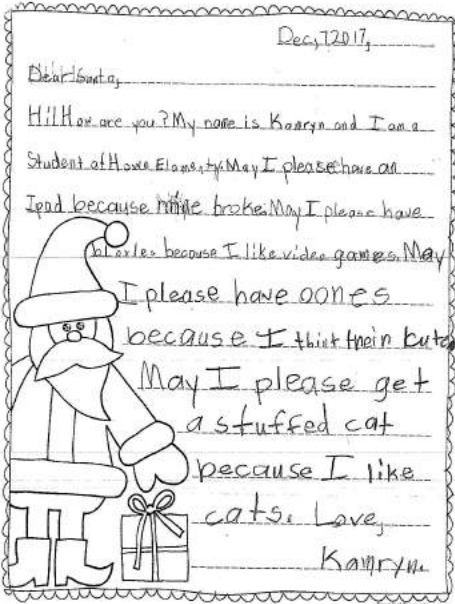 Dec,7,2017,
Dear Santa,
Hi! How are you? My name is Kamryn and I am a
Student of Howe Elementy. May I please have an
Ipad because mine broke. May I please have
because I like video games. May
I please have oones
because I thint their cute
May I please get
a stuffed cat
because I like
cats. Love,
Kamryn.